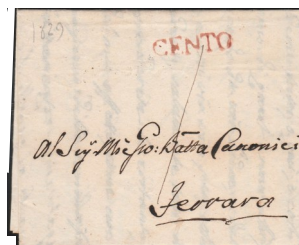 1829
CENTO
Al Sig. Mie Gio: Batta Canonici
Ferrara